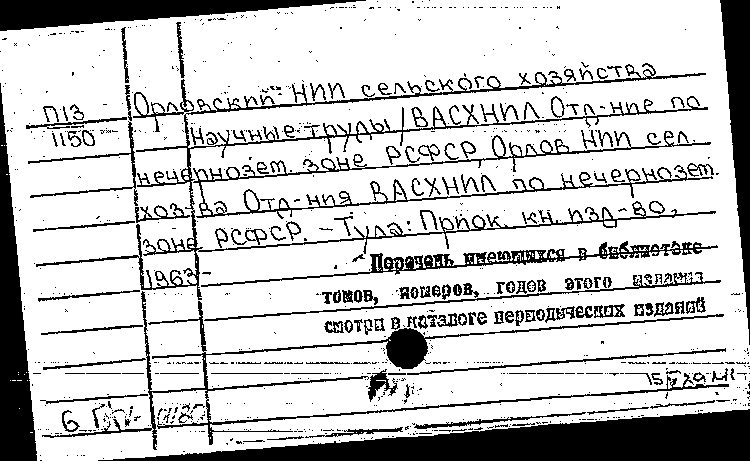 П13
1150
Орловский НИИ сельского хозяйства
Научные труды/ВАСХНИЛ Отд-ние по
нечернозем. зоне РСФСР, Орлов НИИ сел.
хоз-ва Отд-ния ВАСХНИЛ по нечернозем.
зоне РСФСР. – Тула: Приок. кн. изд-во,
1963-
Перечень имеющихся в библиотеке
томов, номеров, годов этого издания
смотри в каталоге периодических изданий
6